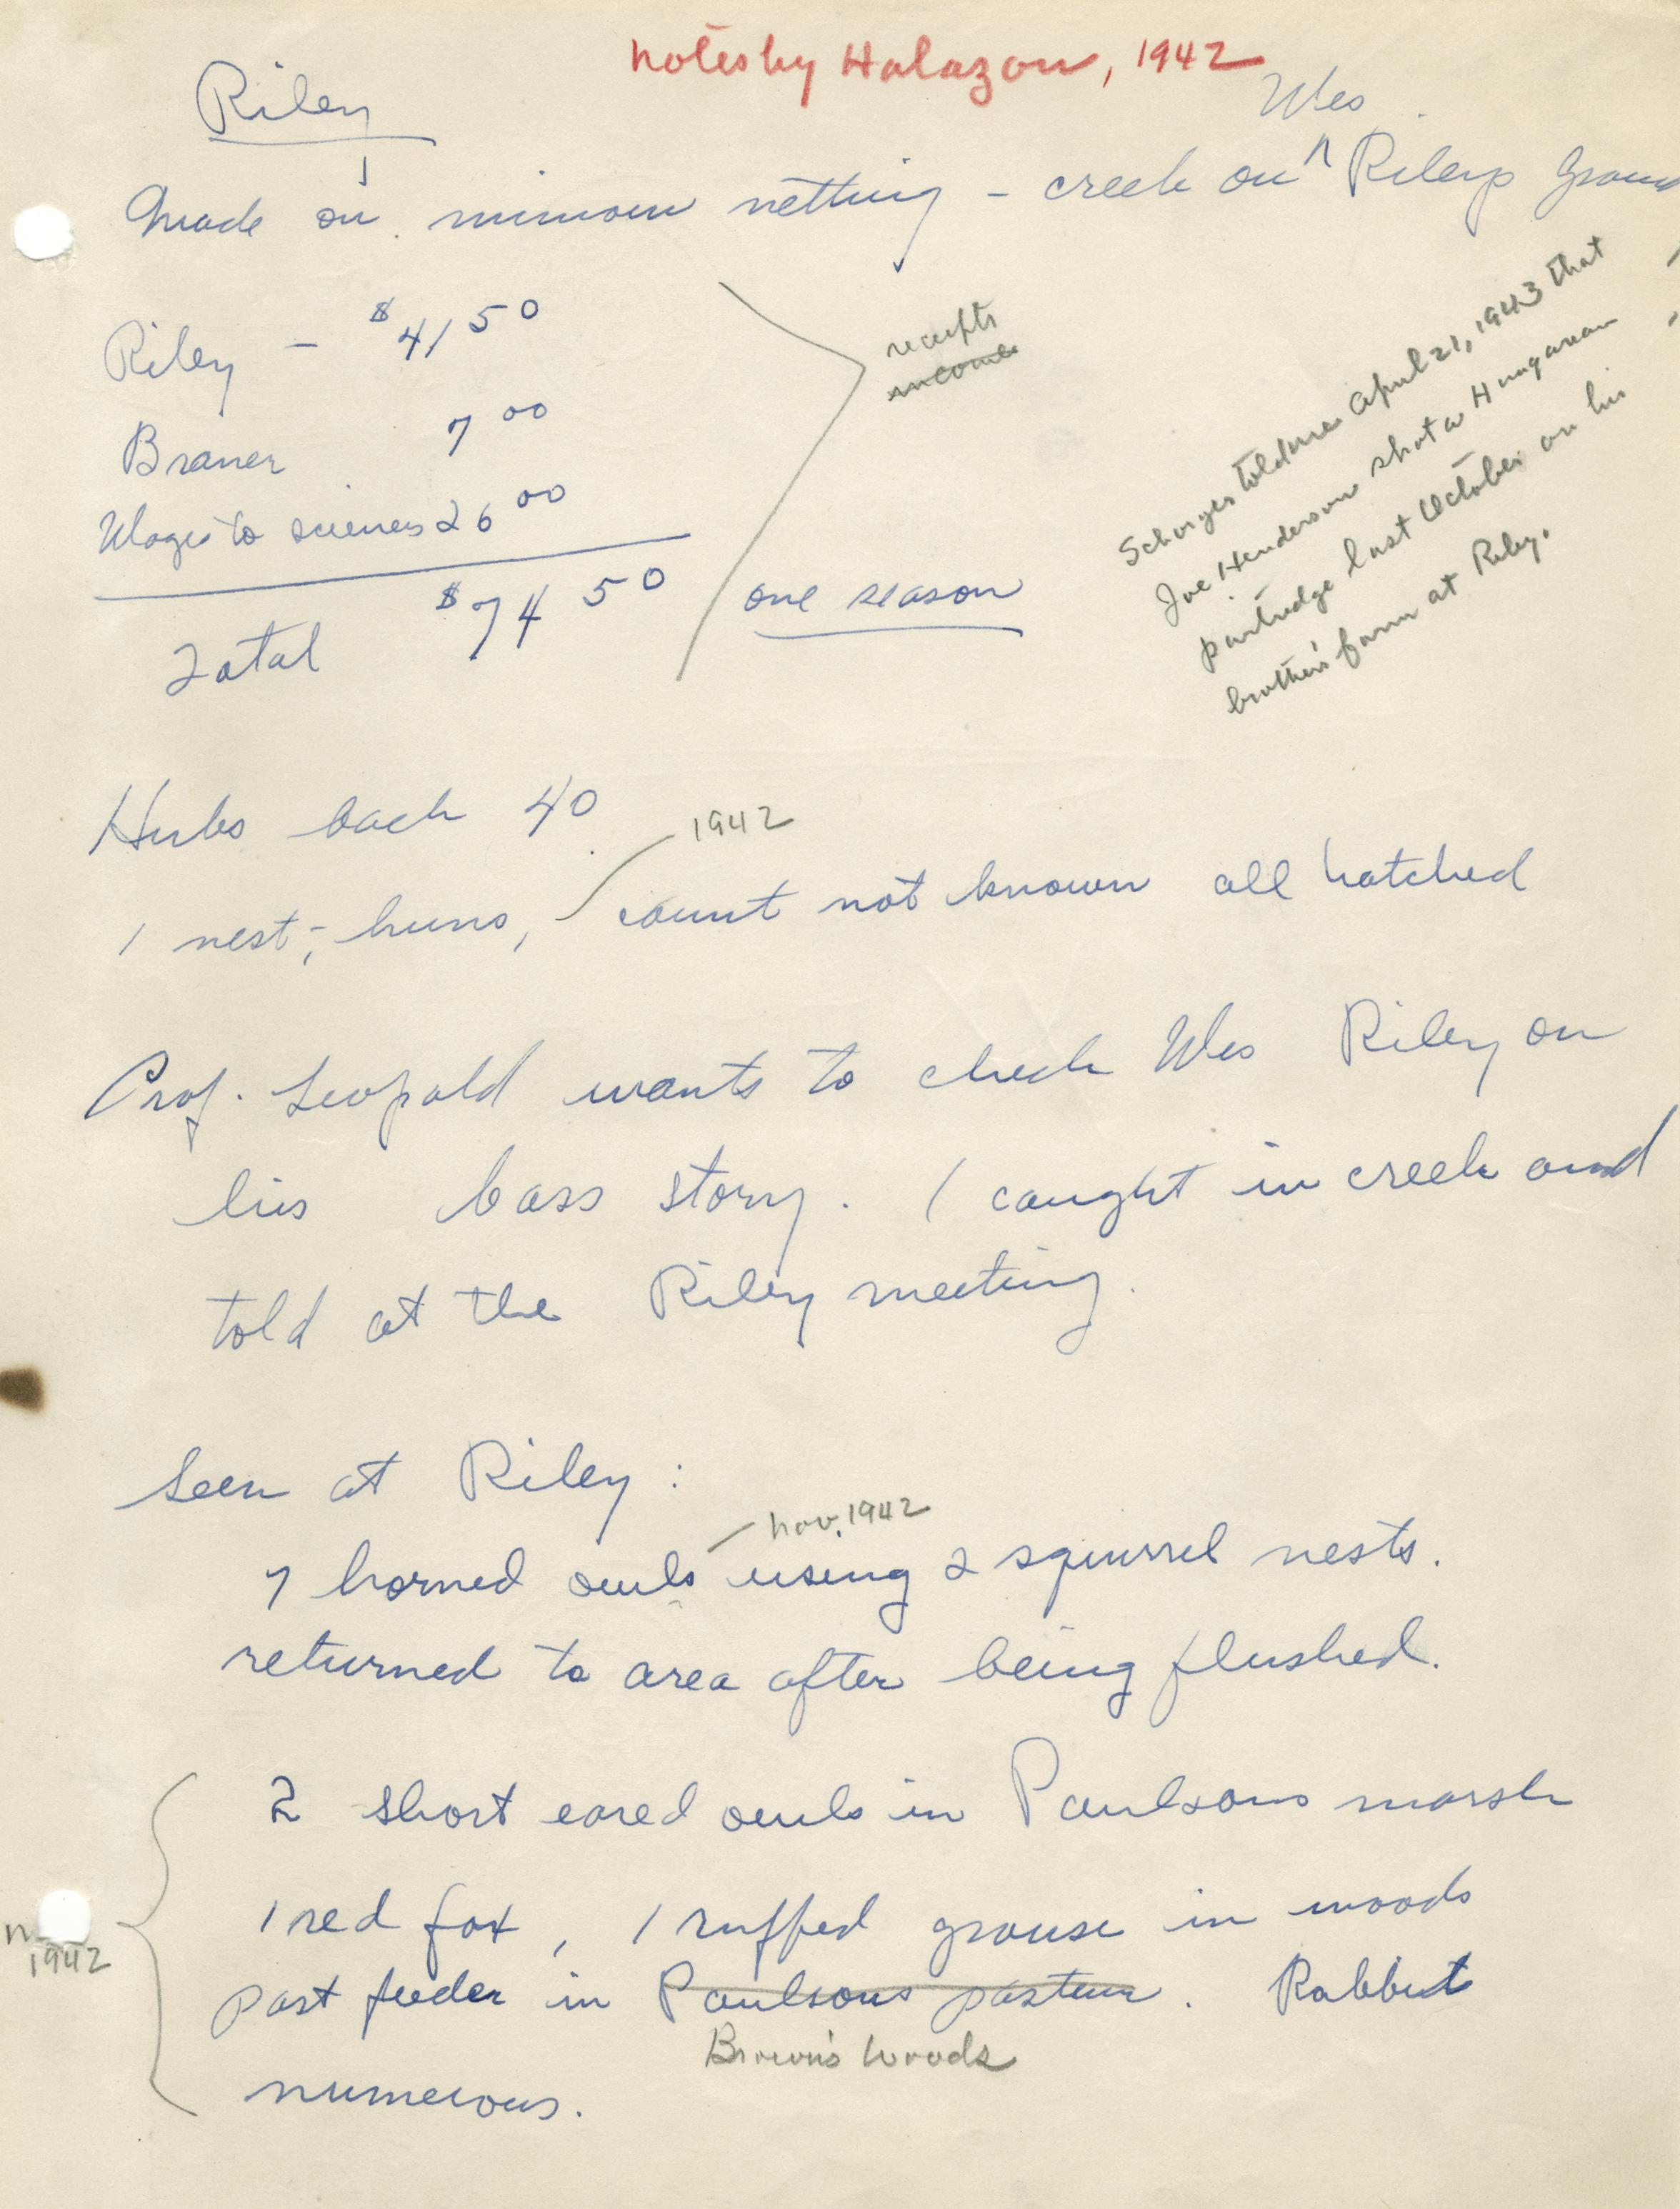 notes by Halazon, 1942
Riley
Wes
Made on minnow netting - creek on ^ Rileys Groun
Riley - $41 50
receipts
income
Braner 7 00
Wages to seiners 26 00
Total $74 50 one season
Schorger told me April 21, 1943 that
Joe Henderson shot a Hungarian
partridge last October on his
brother's farm at Riley.
Herbs back 40
1942
1 nest; huns, count not known all hatched
Prof. Leopold wants to check Wes Riley on
his bass story. 1 caught in creek and
told at the Riley meeting.
Seen at Riley:
Nov. 1942
7 horned owls using 2 squirrel nests.
returned to area after being flushed.
2 short eared owls in Paulsons marsh
1 red fox, 1 ruffed grouse in woods
1942
past feeder in Paulsons pasture. Rabbit
Brown's Woods
numerous.